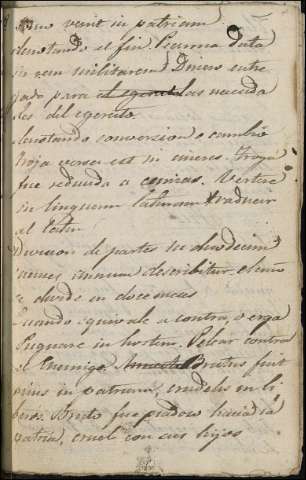 venit in patriam
denotando el fin. Pecunia data
in rem militarem Dinero entre
gado para el egercito las necesida
des del egercito
denotando conversion o cambio
Troja versa est in cineres. Troya
fue reducida a cenizas. Vertere
in linguam latinam traducir
al latin
Division de partes in duodecim
menses annum describitur el año
se divide en doce meses
Cuando equivale a contra, o erga
Pugnare in hostem. Pelear contra
el Enemigo. Brutus fuit
pius in patriam, crudelis in li
beros. Bruto fue piadoso hacia la
patria, cruel con sus hijos